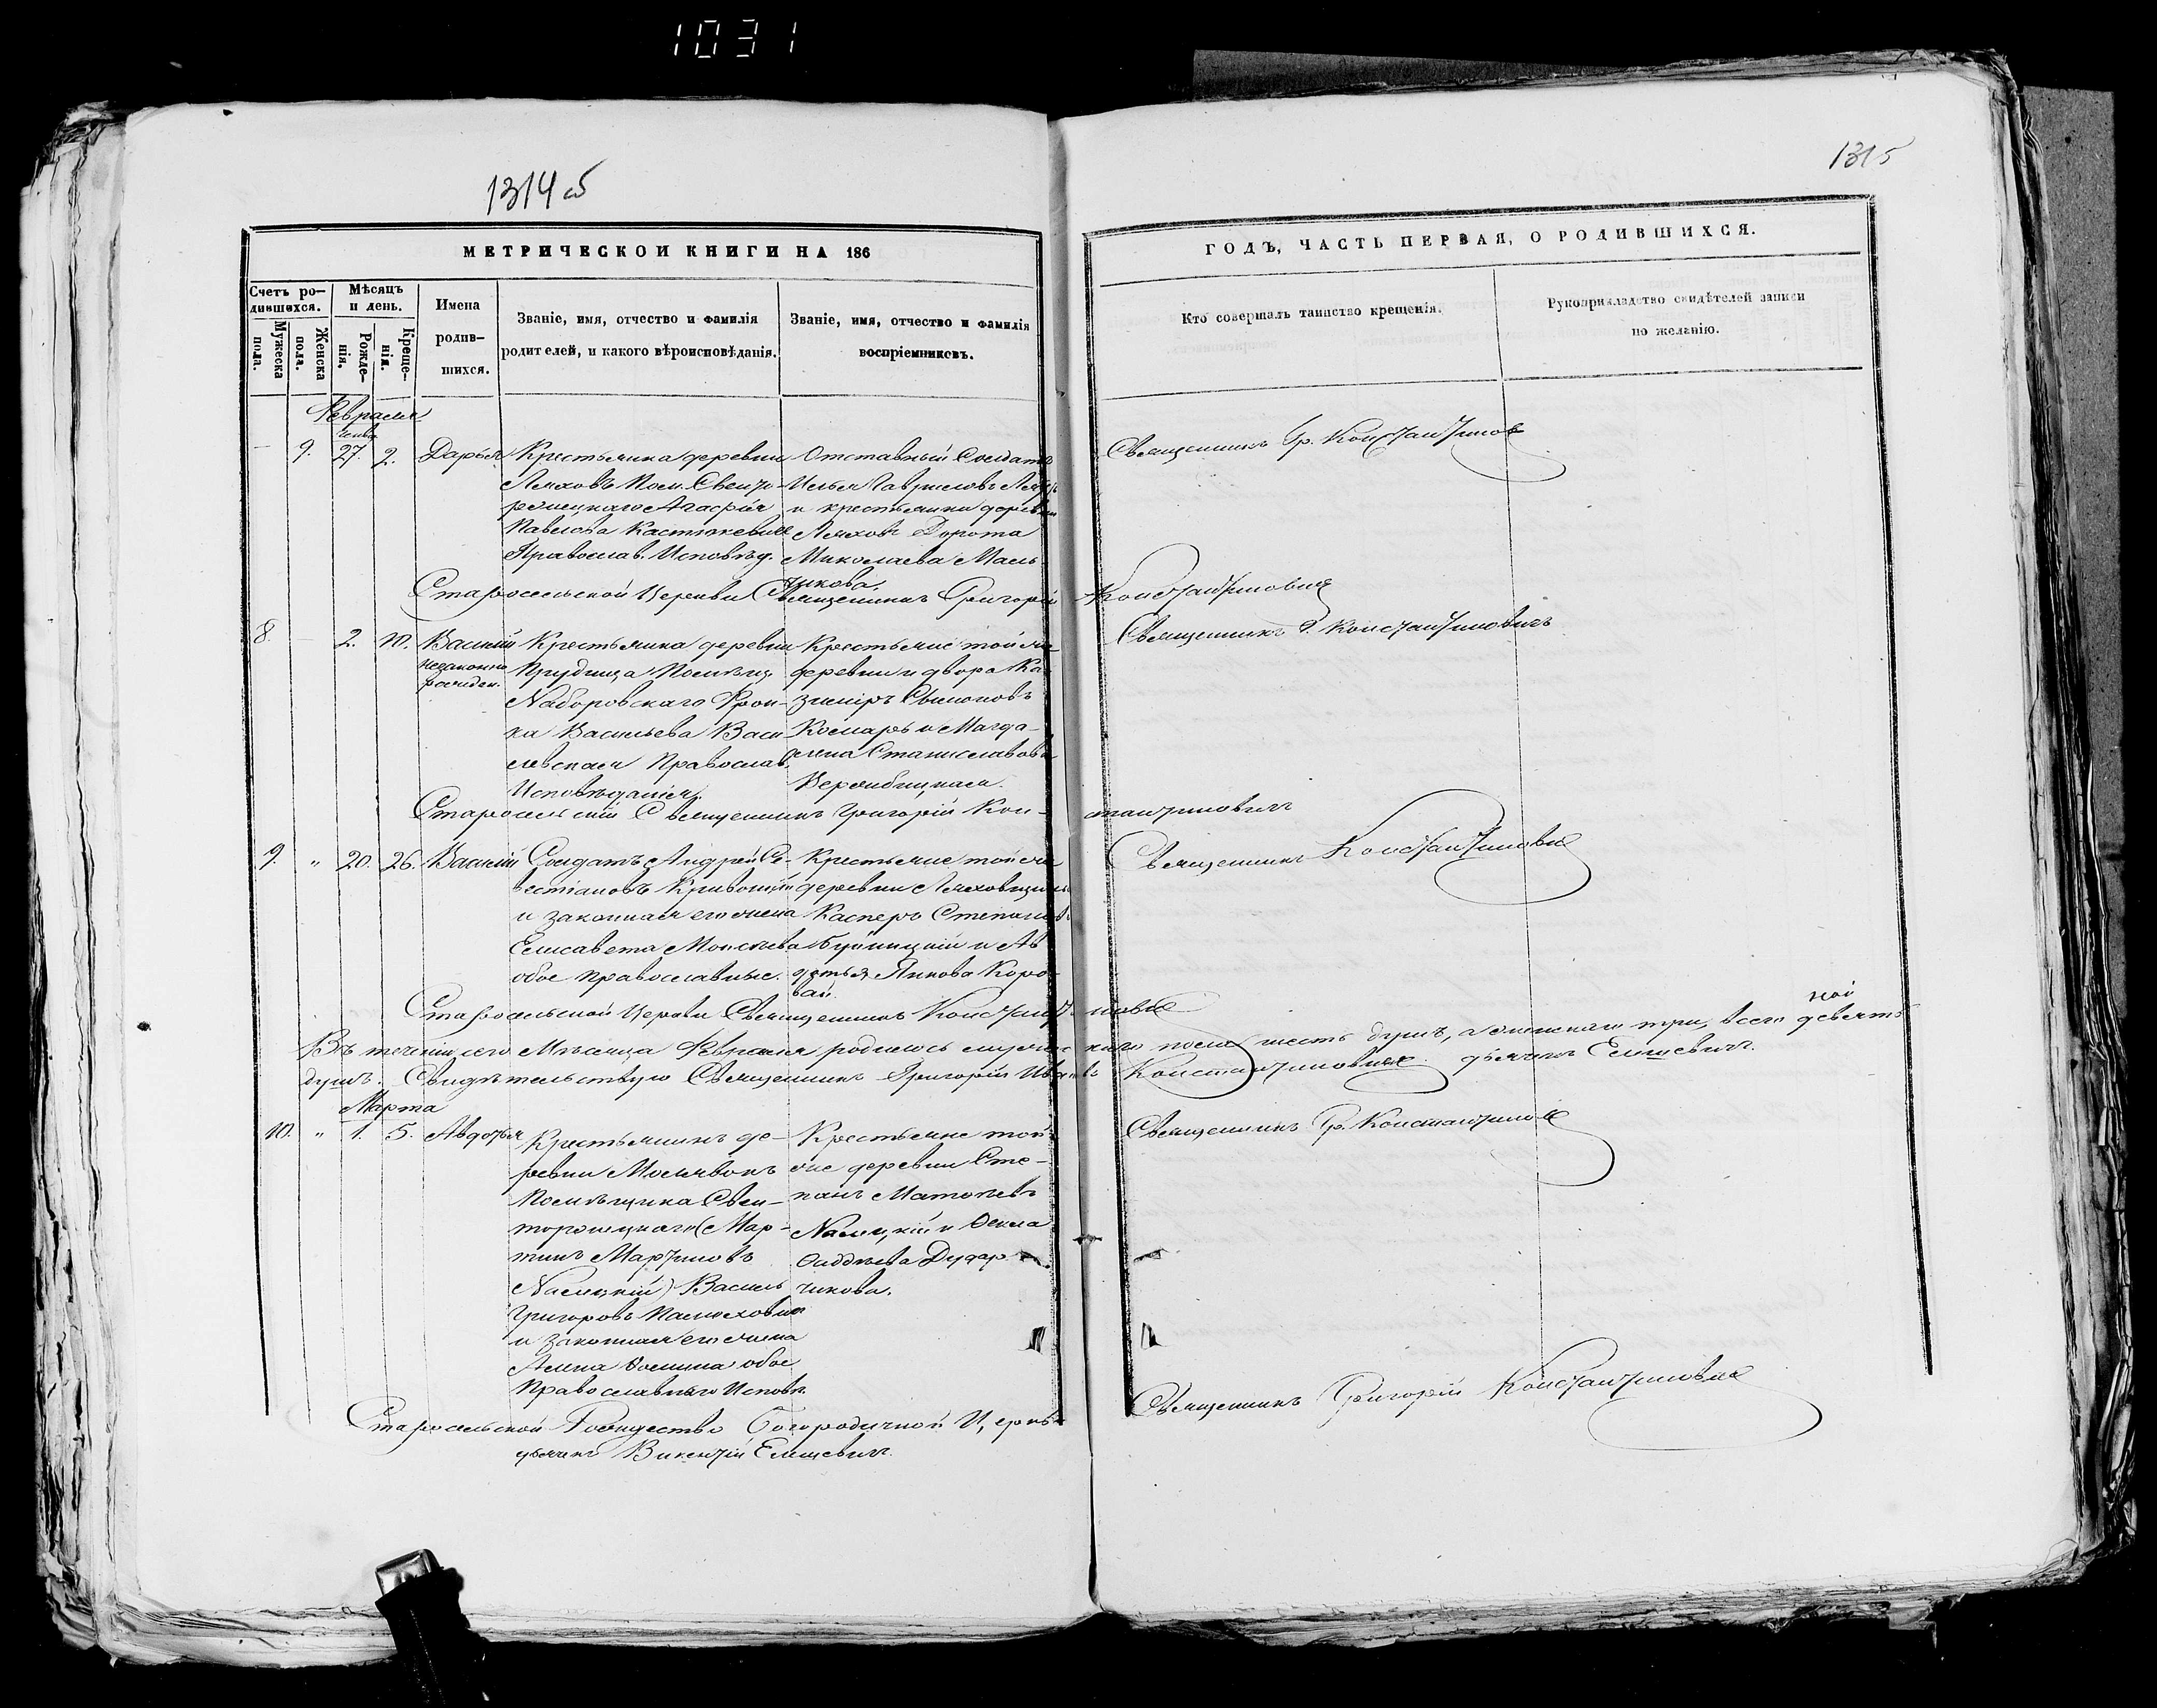 1031
1314 об
1315
МЕТРИЧЕСКОЙ КНИГИ НА 186
ГОДЪ, ЧАСТЬ ПЕРВАЯ, О РОДИВШИХСЯ.
Счетъ ро-
дившихся.
Мужеска
пола.
Женска
пола.
Мѣсяцъ
и день.
Рожде-
нія.
Креще-
нія.
Имена
родив-
шихся.
Званіе, имя, отчество и фамилія
родителей, и какого вѣроисповѣданія.
Званіе, имя, отчество и фамилія
воспріемниковъ.
Кто совершалъ таинство крещенія.
Рукоприкладство свидѣтелей записи
по желанію.
Февраля
9. 27. 2. Дарья
Крестьянка деревни
Ляховъ Пом.
Агафія
Павлова
Православ. Исповѣд.
Отставный Солдатъ
Илья Гавриловъ
и крестьянка деревни
Ляховъ Дорота
Миколаева Маль
чикова
Священникъ Гр. Константинов
Старосельской Церкви Священникъ Григорій Константинович
8. 2. 10. Василій
незаконно
рожден.
Крестьянка деревни
Прудища Помѣщ.
Наборовскаго Фрон-
ка Васильева Васи
левская Православ.
Исповѣданія.
Крестьяне той же
деревни и двора Ка-
зиміръ Симоновъ
Комаръ и Магда-
лена Станиславова
Вержбицкая.
Священникъ Г. Константиновичъ
Старосельскій Священникъ Григорій Кон- стантиновичъ
9. " 20. 26. Василій
Солдатъ Андрей Се-
вестіановъ
и законная его жена
Елисавета Моисеева
обое православные.
Крестьяне той же
деревни
Касперъ Степановъ
и Ав
дотья Янкова Коро
вай.
Священникъ Константинович
Старосельской Церкви Священникъ Константинович
Въ теченіи сего Мѣсяца Февраля родилось мужескаго пола шесть душъ, а женскаго три, всего девять
душъ. Свидѣтельствую Священникъ Григорій Ивановъ Константинович дьячекъ Елишевичъ.
Марта
10. " 1. 5. Авдотья
Крестьянинъ де-
ревни
Помѣщика Свен-
торжецкаго (Мар-
тинъ Мартиновъ
Налецкій) Василь
Григоровъ
и законная его жена
Анна Фомина обое
Православнаго Исповѣ.
Крестьяне той
же деревни Сте-
панъ Матвѣевъ
Налецкій и Фекла
Фаддѣева Дудар
чикова.
Священникъ Гр. Константинов
Старосельской Рождество Богородичной Церкви
дьячекъ Викентій Елишевичъ.
Священникъ Григорій Константинович